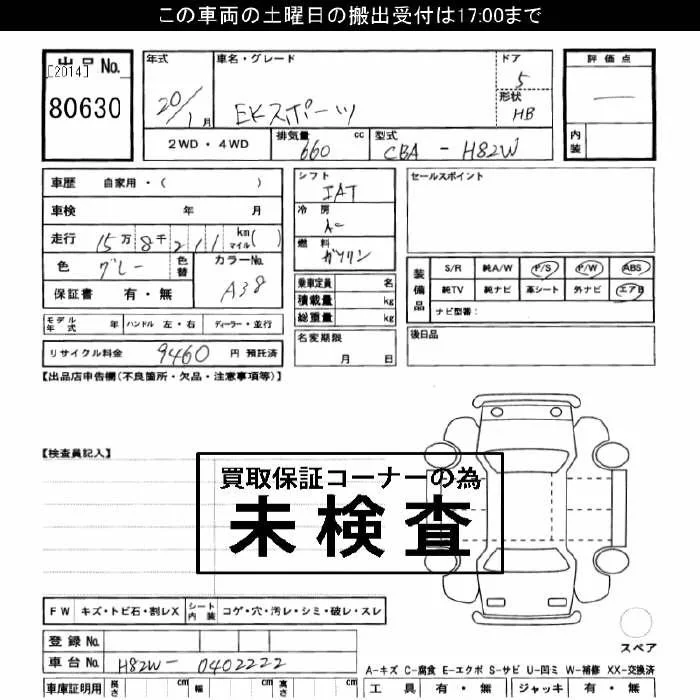 この車両の土曜日の搬出受付は17:00まで
出品No.
[2014]
80630
年式
20/1月
車名・グレード
EKスポーツ
ドア
5
形状
HB
評価点
—
内装
2WD ・ 4WD
排気量
660 cc
型式
CBA - H82W
車歴 自家用・( )
車検 年 月
走行 15万8千211 km マイル( )
色 グレー 色替
カラーNo. A38
保証書 有・無
シフト
IAT
冷房
AC
燃料
ガソリン
乗車定員 名
積載量 kg
総重量 kg
セールスポイント
装備品
S/R 純A/W P/S P/W ABS
純TV 純ナビ 革シート 外ナビ エアB
ナビ型番:
モデル年式 年 ハンドル 左・右 ディーラー・並行
リサイクル料金 9460 円 預託済
名変期限
月 日
後日品
【出品店申告欄(不良箇所・欠品・注意事項等)】
【検査員記入】
買取保証コーナーの為
未検査
FW キズ・トビ石・割レX シート内装 コゲ・穴・汚レ・シミ・破レ・スレ
登録No.
車台No. H82W- 0402222
スペア
A-キズ C-腐食 E-エクボ S-サビ U-凹ミ W-補修 XX-交換済
車庫証明用 長さ cm 幅 cm 高さ cm
工具 有・無 ジャッキ 有・無